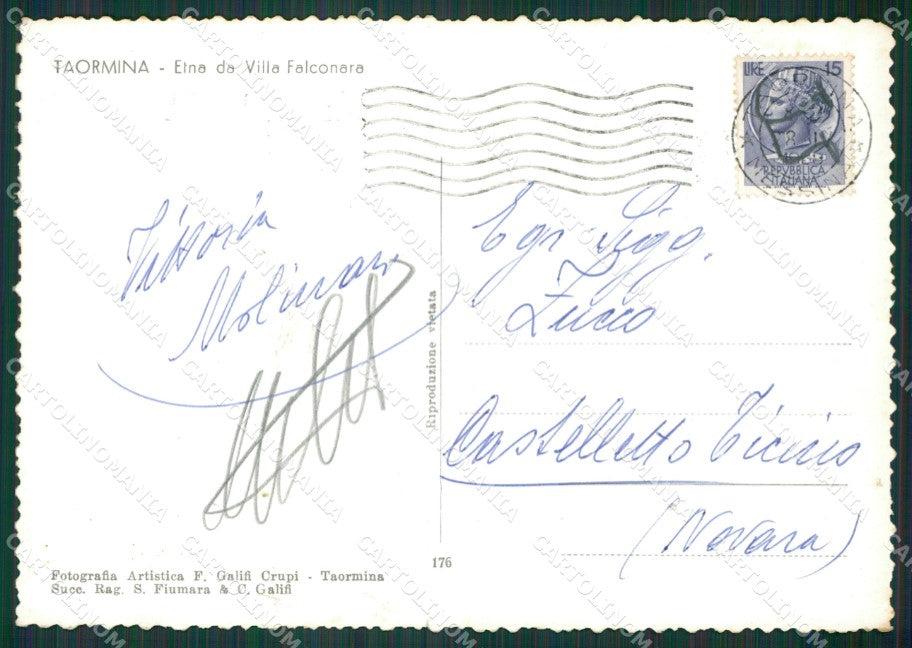 TAORMINA - Etna da Villa Falconara
LIRE 15
REPVBBLICA
ITALIANA
Vittoria
Molinari
Egr. Sigg.
Zucco
Castelletto Ticino
(Novara)
Riproduzione vietata
176
Fotografia Artistica F. Galifi Crupi - Taormina
Succ. Rag. S. Fiumara & C. Galifi
CARTOLINOMANIA